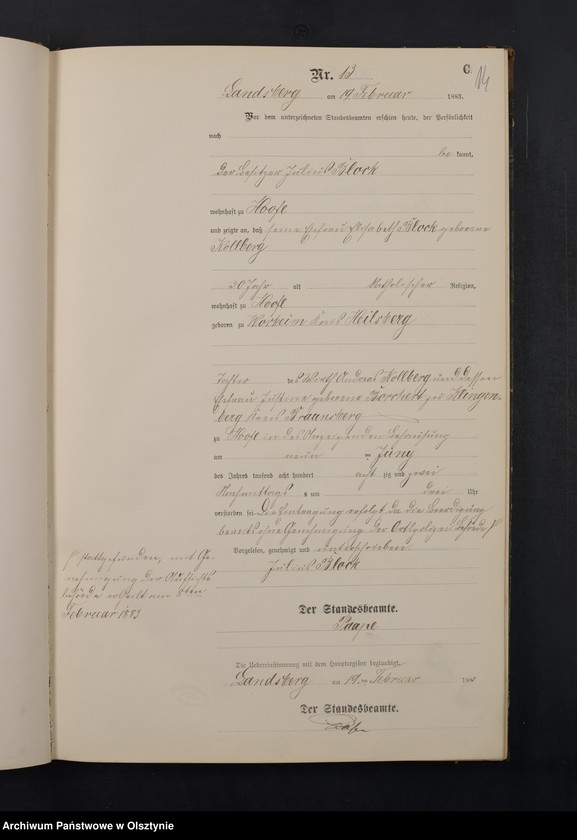 Nr. 13
C.
14
Landsberg am 19. Februar 1883.
Vor dem unterzeichneten Standesbeamten erschien heute, der Persönlichkeit
nach
be kannt,
der Besitzer Julius Block
wohnhaft zu Hoofe
und zeigte an, daß seine Ehefrau Elisabeth Block geborene
Kollberg
30 Jahr alt katholischer Religion,
wohnhaft zu Hoofe
geboren zu Workeim Kreis Heilsberg
Tochter des Wirth Andreas Kollberg und dessen
Ehefrau Justina geborene Borchert zu Klingen-
berg Kreis Braunsberg
zu Hoofe in des Anzeigenden Behausung
am neun Juny
des Jahres tausend acht hundert acht zig und zwei
Nachmittags um drei Uhr
verstorben sei. Die Eintragung erfolgt da die Beerdigung
bereits ohne Genehmigung der Ortspolizei Behörde
Vorgelesen, genehmigt und unterschrieben
Julius Block
stattgefunden, mit Ge-
nehmigung der Aufsichts
behörde ertheilt am 8ten
Februar 1883
Der Standesbeamte.
Paape
Die Uebereinstimmung mit dem Hauptregister beglaubigt.
Landsberg am 19. Februar 188
Der Standesbeamte.
Paape
Archiwum Państwowe w Olsztynie